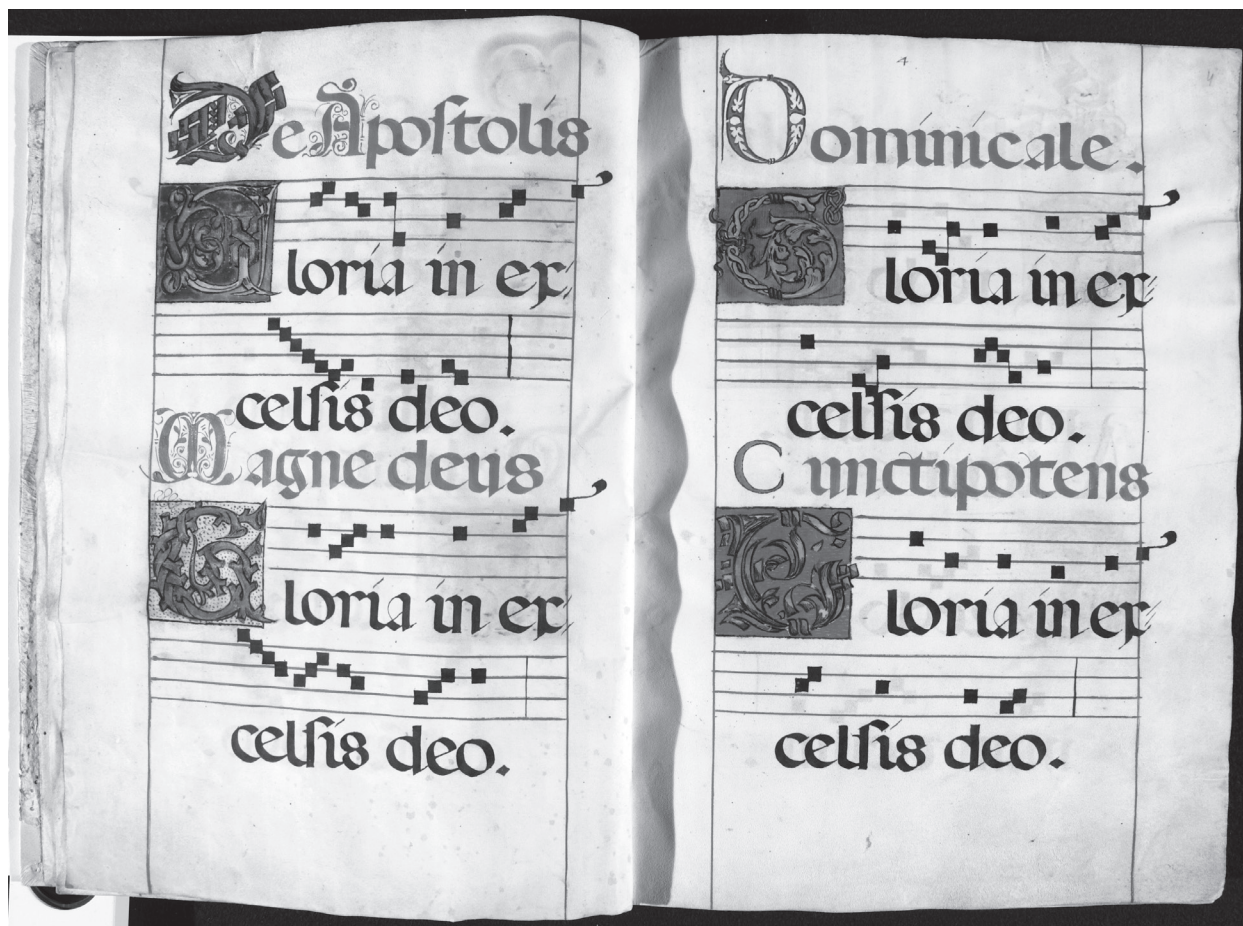 De Apostolis
Gloria in ex
celsis deo.
Magne deus
Gloria in ex
celsis deo.
4
Dominicale.
Gloria in ex
celsis deo.
Cunctipotens
Gloria in ex
celsis deo.